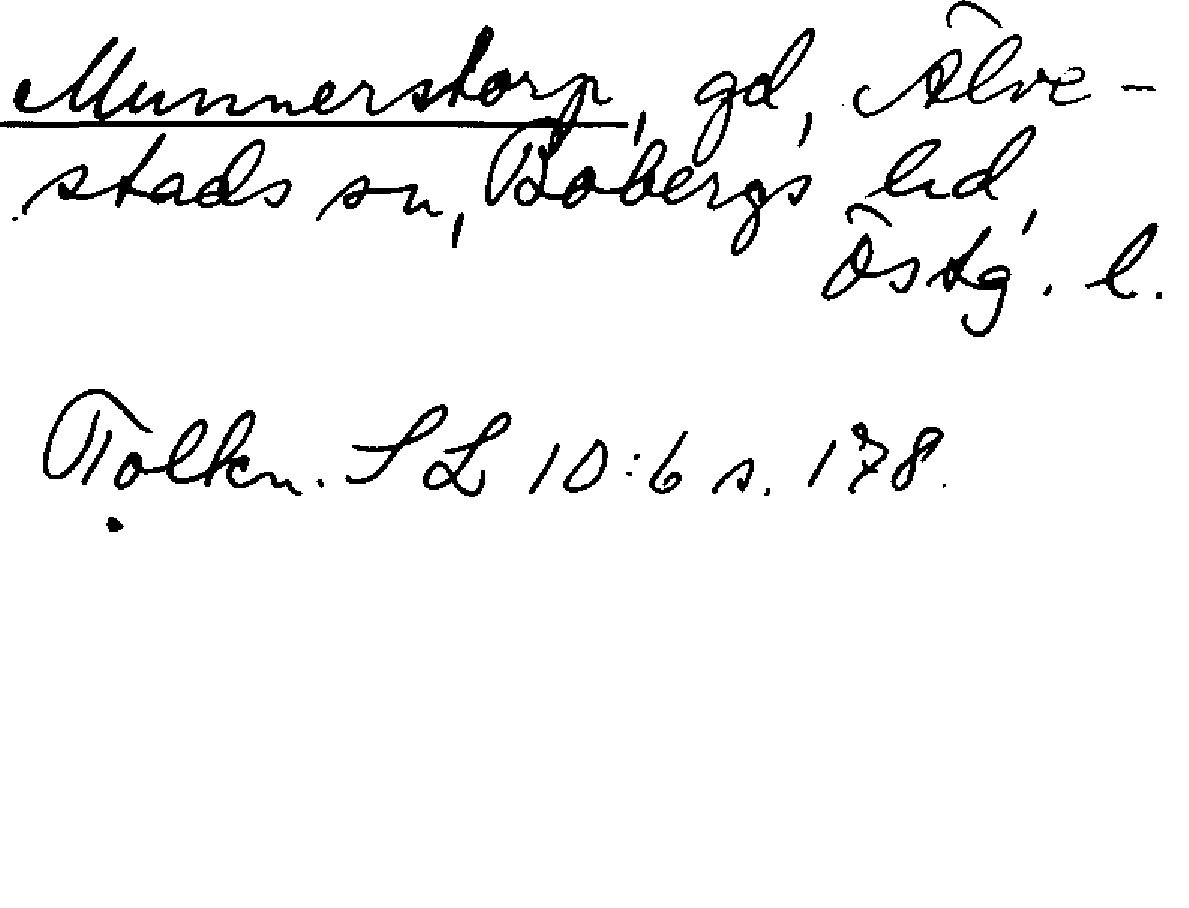 Munnerstorp, gd, Älve-
stads sn, Bobergs hd,
Östg. l.
Tolkn. SL 10:6 s. 178.